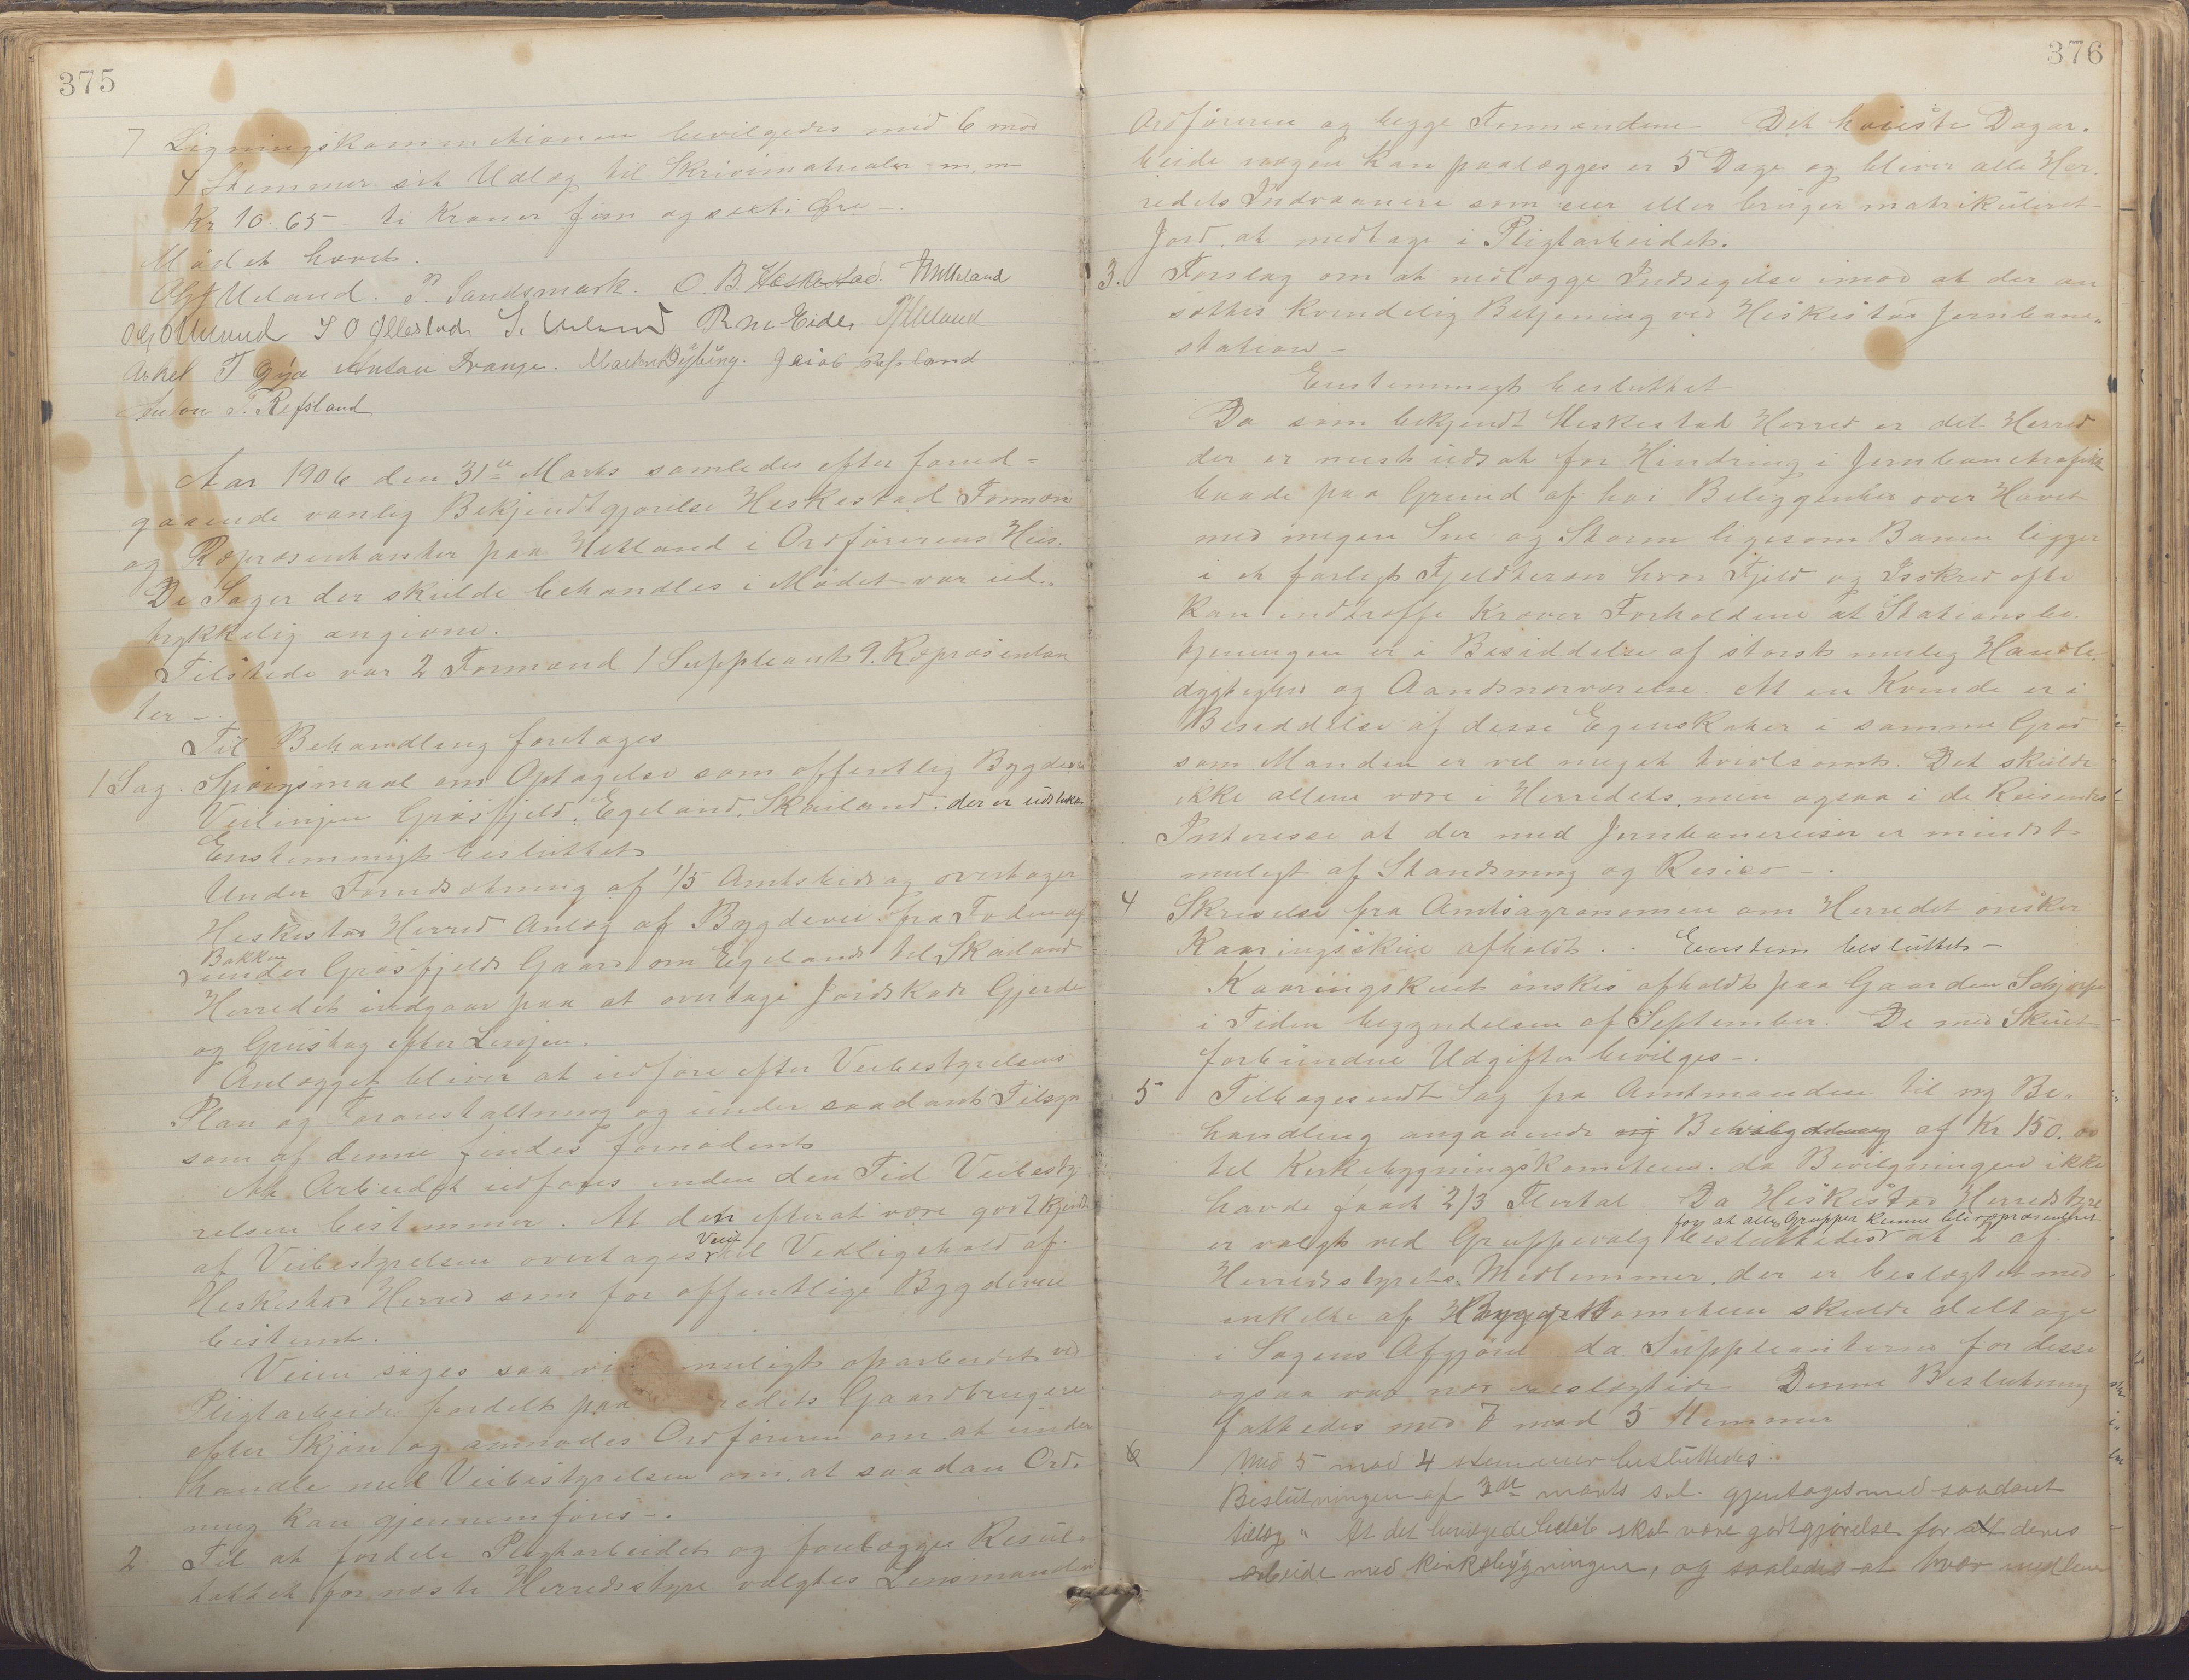 375
7 Ligningskommissionen bevilgedes med 6 mod
4 Stemmer sit Udlæg til Skrivimatrialer m.m
Kr 10.65 - ti Kroner fem og sexti Øre -.
Mödet hævet.
Ueland. P. Sandsmark. O. B. Heskestad.
S O Gllestad S. Ueland R M Eide
Askel T Gya Anton Drange. Martin Dybing. Jacob Refsland
Anton T. Refsland
Aar 1906 den 31te Marts samledes efter forud=
gaaende vanlig Bekjendtgjörelse Heskestad Formæn
og Repræsentanter paa Hetland i Ordförerens Hus.
De Sager der skulde behandles i Mödet var ud-
trykkelig angivne.
Tilstede var 2 Formænd 1 Suppleant 9. Repræsentan
ter -
Til Behandling foretages
1 Sag. Spörgsmaal om Optagelse som offentlig Bygdevei
Veilinjen Gräsfjeld, Egeland, Skailand. der er udstukket
Enstemmigt besluttet
Under Forudsætning af 1/5 Amtsbidrag overtager
Heskestad Herred Anlæg af Bygdevei fra Foden af
Bakken
under Gräsfjelds Gaard om Egelands til Skailand
Herredet indgaar paa at overtage Jordskade Gjerde
og Grustag efter Linjen.
Anlægget bliver at udföre efter Veibestyrelsens
Plan og Foranstaltning og under saadant Tilsyn
som af denne findes fornödent
At Arbeidet udföres inden den Tid Veibesty-
relsen bestemmer. At den efterat være godtkjendt
af Veibestyrelsen overtages Veien til Vedligehold af
Heskestad Herred som for offentlige Bygdeveie
bestemt.
Veien söges saa vidt muligt oparbeidet ved
Pligtarbeide fordelt paa Herredets Gaardbrugere
efter Skjön og anmodes Ordföreren om at under
handle med Veibestyrelsen om at saadan Ord-
ning kan gjennemföres -.
2 Til at fordele Pligtarbeidet og forelægge Resul-
tatet for næste Herredsstyre valgtes Lensmanden
376
Ordföreren og begge Formændene - Det höieste Dagar-
beide nogen kan paalægges er 5 Dage og bliver alle Her-
redets Indvaanere som eier eller bruger matrikuleret
Jord at medtage i Pligtarbeidet.
3. Forslag om at nedlægge Indsigelse imod at der an
sættes kvindelig Betjening ved Heskestad Jernbane-
station -
Enstemmigt besluttet
Da som bekjendt Heskestad Herred er det Herred
der er mest udsat for Hindring i Jernbanetrafik
baade paa Grund af höi Beliggenhed over Havet
med megen Sne og Storm ligesom Banen ligger
i et farligt Fjeldteræn hvor Fjeld og Isskred ofte
kan indtræffe kræver Forholdene at Stationsbe-
tjeningen er i Besiddelse af störst mulig Handle-
dygtighed og Aandsnærværelse. At en Kvinde er i
Besiddelse af disse Egenskaber i samme Grad
som Manden er vel meget tvivlsomt. Det skulde
ikke allene være i Herredets, men ogsaa i de Reisendes
Interesse at der med Jernbanereiser er mindst
muligt af Standsning og Resico -.
4 Skrivelse fra Amtsagronomen om Herredet önsker
Kaaringsskue afholdt. . Enstem besluttet -
Kaaringskuet önskes afholdt paa Gaarden
i Tiden begyndelsen af September. De med Skuet
forbundne Udgifter bevilges -.
5 Tilbagesendt Sag fra Amtmanden til ny Be-
handling angaaende af Kr 150.00
til Kirkebygningskomiteen. da Bevilgningen ikke
havde faaet 2/3 Flertal. Da Heskestad Herredstyre
for at alle Grupper kunne bli repræsenteret
er valgt ved Gruppevalg besluttedes at 2 af
Herredsstyrets Medlemmer der er beslægtet med
enkelte af Byggekomiteen skulde deltage
i Sagens Afgjörelse da Suppleanterne for desse
ogsaa var nær beslægtede Denne Beslutning
fattedes med 7 mod 5 Stemmer
6 Med 5 mod 4 stemmer besluttedes.
Beslutningen af 3de marts sel. gjentages med saadant
tillæg " At det bevilgede belöb skal være godtgjörelse for alt deres
arbeide med kirkebygningen, og saaledes at hver medlem